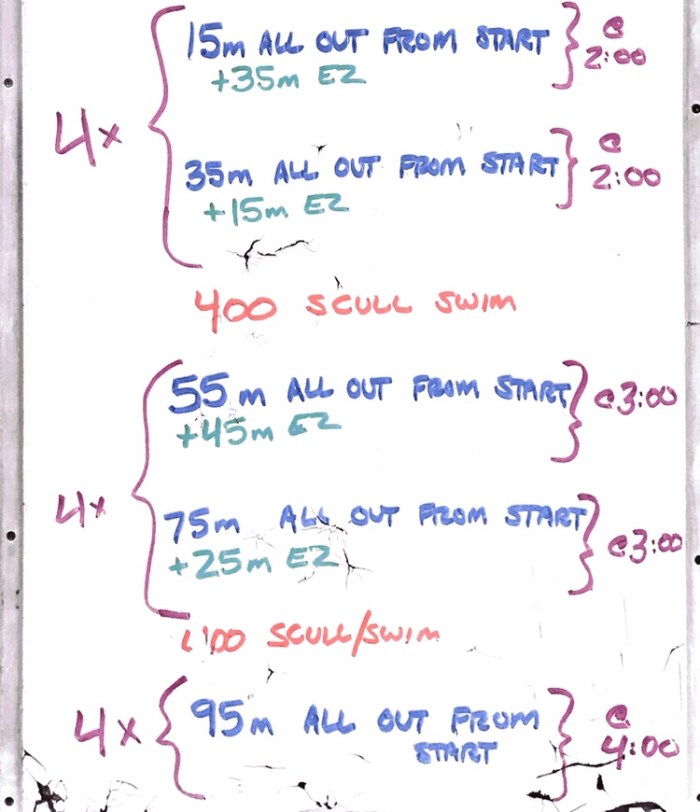 15m ALL OUT FROM START } @
4x { +35m EZ 2:00
35m ALL OUT FROM START } @
+15m EZ 2:00
400 SCULL SWIM
55m ALL OUT FROM START } @3:00
+45m EZ
4x { 75m ALL OUT FROM START } @3:00
+25m EZ
SCULL/SWIM
4x { 95m ALL OUT FROM } @
START 4:00